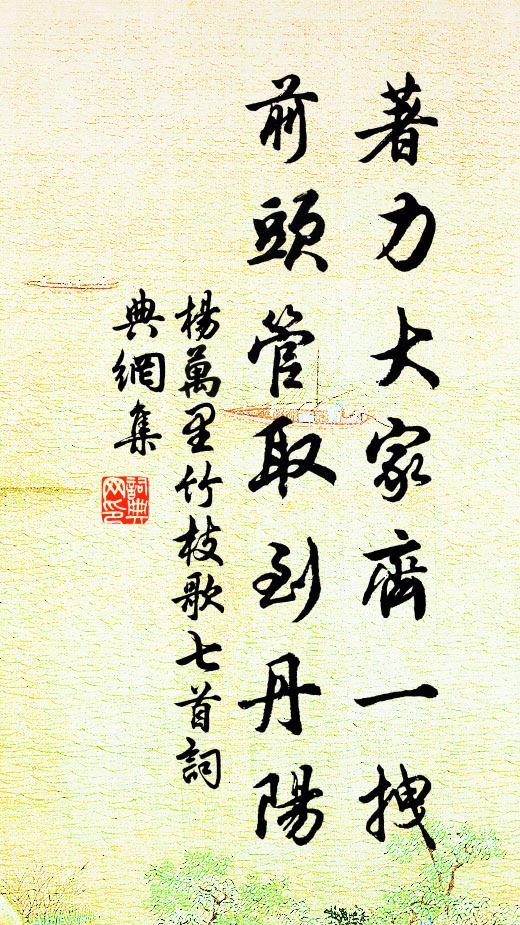 著力大家齊一拽
前頭管取到丹陽
楊萬里竹枝歌七首詞
典網集
詞典網印